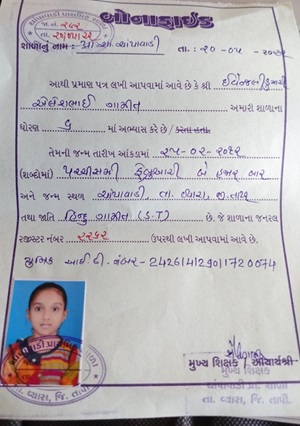 બોનાફાઈડ
શાળાનું નામ : પ્રા. શા. ચાંપાવાડી તા. : ૨૦-૦૫-
આથી પ્રમાણ પત્ર લખી આપવામાં આવે છે કે શ્રી
શૈલેશભાઈ ગામીત અમારી શાળાના
ધોરણ ૬ માં અભ્યાસ કરે છે / કરતા હતા.
તેમની જન્મ તારીખ આંકડામાં ૨૫-૦૨-૨૦૧૨
(શબ્દોમાં) પચ્ચીસમી ફેબ્રુઆરી બે હજાર બાર
અને જન્મ સ્થળ ચાંપાવાડી, તા. વ્યારા, જી. તાપી
તથા જાતિ હિન્દુ ગામીત (S.T) છે. જે શાળાના જનરલ
રજીસ્ટર નંબર ૨૨૬૨ ઉપરથી લખી આપવામાં આવે છે.
યુનિક આઈ.ડી. નંબર - 24261412901720074
મુખ્ય શિક્ષક / આચાર્યશ્રી
મુખ્ય શિક્ષક
ચાંપાવાડી પ્રા. શાળા
તા. વ્યારા, જિ. તાપી.